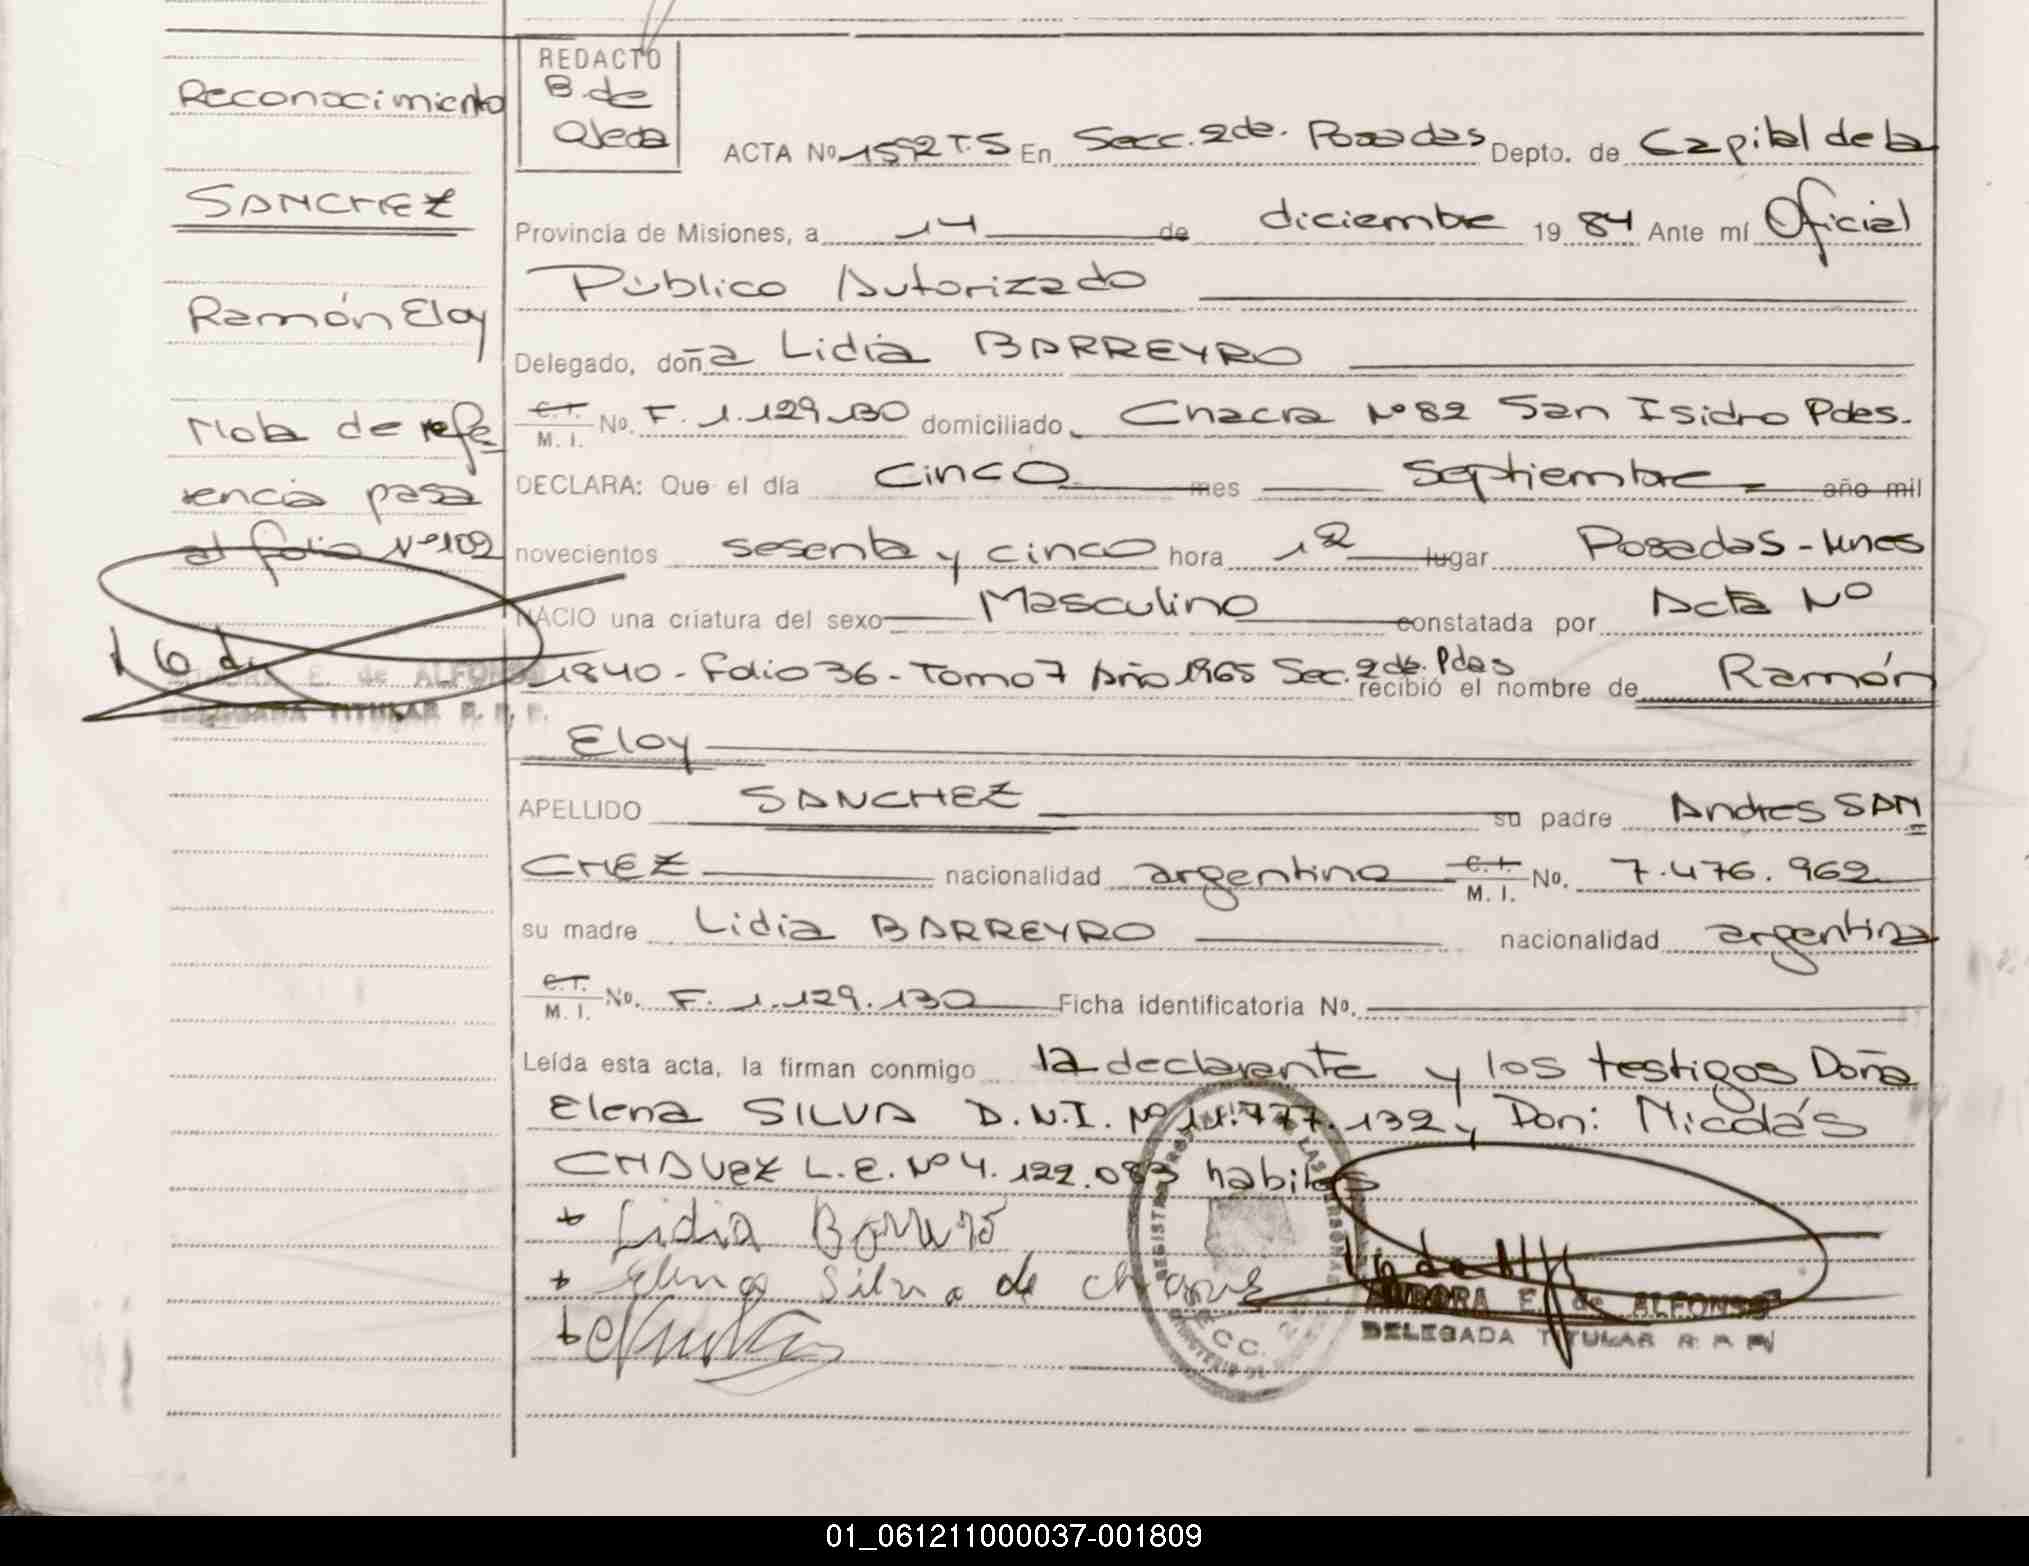 Reconocimiento
SANCHEZ
Ramón Eloy
Nota de refe
rencia pasa
al folio Nº 102
E. de ALFONSO
DELEGADA TITULAR R. P. P.
REDACTO
B. de
Ojeda
ACTA No 1592 T.5 En Secc. 2da. Posadas Depto. de Capital de la
Provincia de Misiones, a 14 de diciembre 19 84 Ante mí Oficial
Público Autorizado
Delegado, doña Lidia BARREYRO
C.I. M. I. No. F. 1.129.130 domiciliado Chacra Nº 82 San Isidro Pdas.
DECLARA: Que el día cinco mes septiembre año mil
novecientos sesenta y cinco hora 12 lugar Posadas - Mnes
NACIO una criatura del sexo Masculino constatada por Acta Nº
1840 - folio 36 - Tomo 7 Año 1965 Sec. 2da. Pdas recibió el nombre de Ramón
Eloy
APELLIDO SANCHEZ su padre Andres SAN
CHEZ nacionalidad argentino C.I. M. I. No. 7.476.962
su madre Lidia BARREYRO nacionalidad argentina
C.I. M. I. No. F. 1.129.130 Ficha identificatoria No.
Leída esta acta, la firman conmigo la declarante y los testigos Doña
Elena SILVA D.N.I. Nº 11.777.132 y Don: Nicolás
CHAVEZ L.E. Nº 4.122.083 habiles
+ Lidia Borrero
+ Elena Silva de Chavez
AURORA E. de ALFONSO
DELEGADA TITULAR
01_061211000037-001809